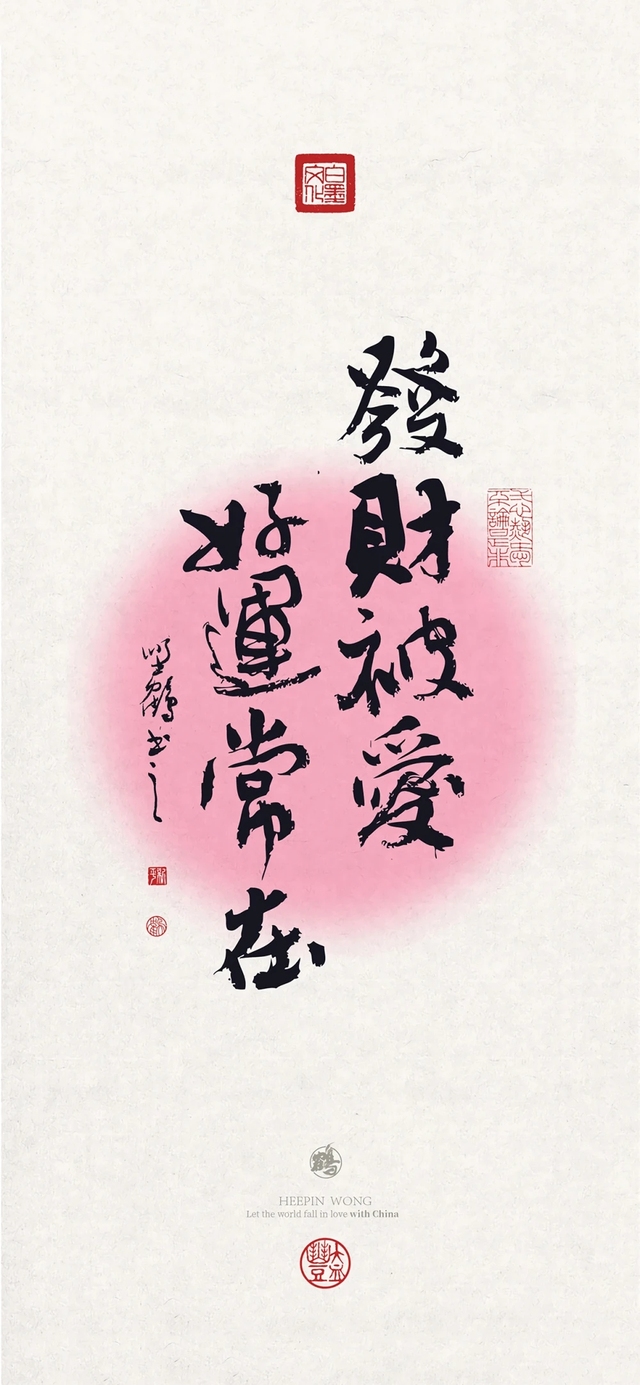 白墨
文化
發財被愛
好運常在
鶴書之
鶴
HEEPIN WONG
Let the world fall in love with China